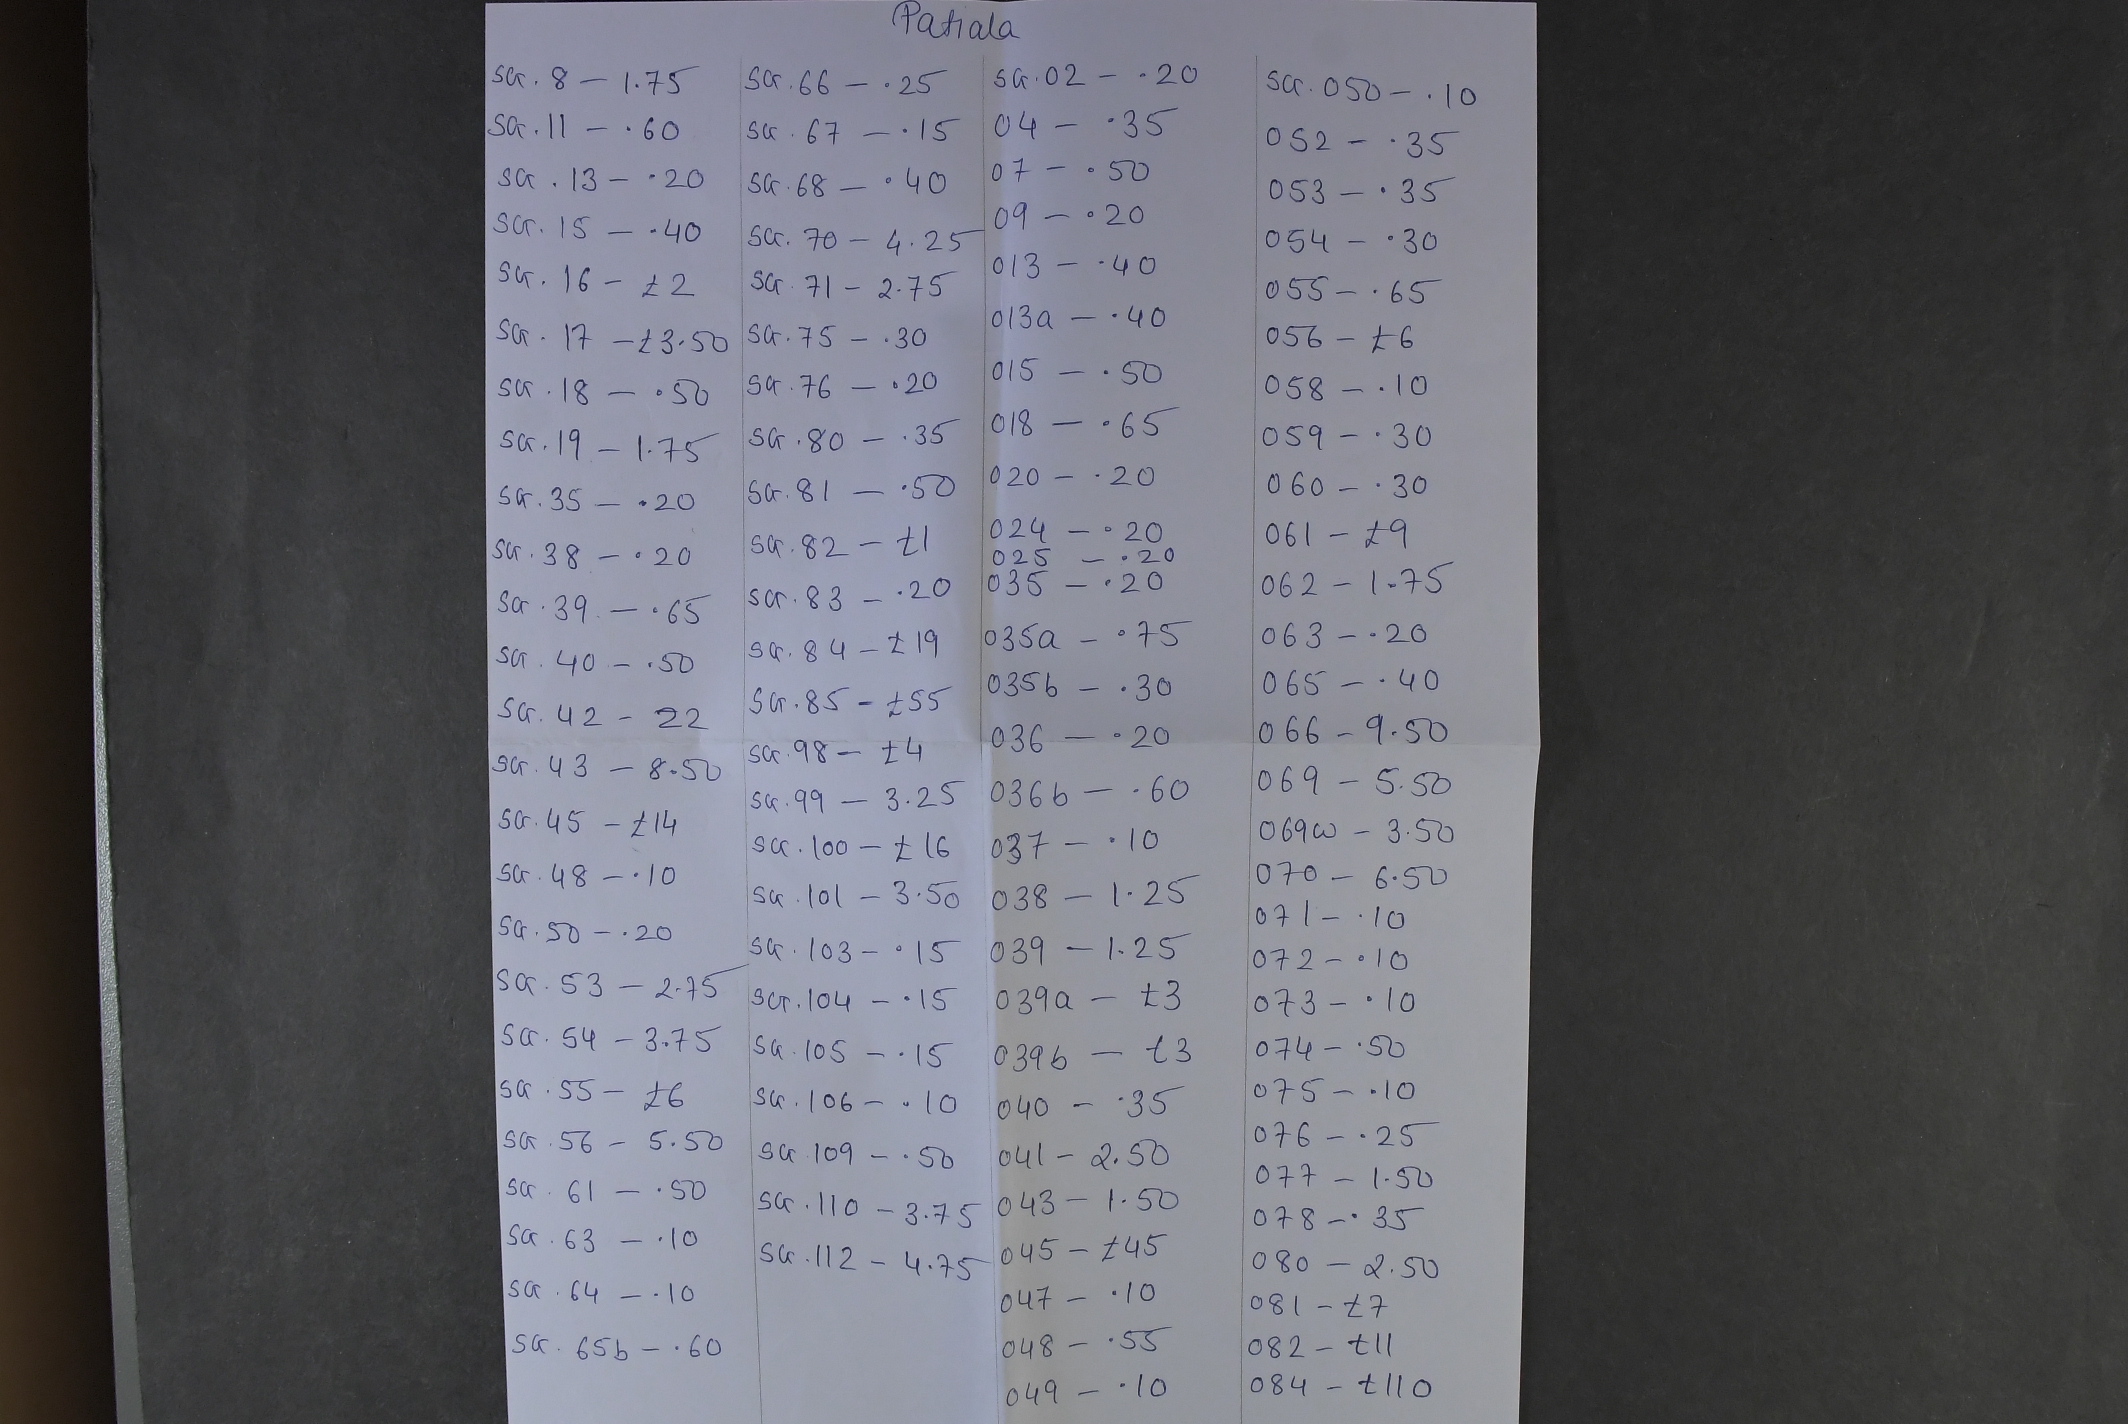 Patiala
SG. 8 – 1.75
SG. 11 – .60
SG. 13 – .20
SG. 15 – .40
SG. 16 – £2
SG. 17 – £3.50
SG. 18 – .50
SG. 19 – 1.75
SG. 35 – .20
SG. 38 – .20
SG. 39 – .65
SG. 40 – .50
SG. 42 – 22
SG. 43 – 8.50
SG. 45 – £14
SG. 48 – .10
SG. 50 – .20
SG. 53 – 2.75
SG. 54 – 3.75
SG. 55 – £6
SG. 56 – 5.50
SG. 61 – .50
SG. 63 – .10
SG. 64 – .10
SG. 65b – .60
SG. 66 – .25
SG. 67 – .15
SG. 68 – .40
SG. 70 – 4.25
SG. 71 – 2.75
SG. 75 – .30
SG. 76 – .20
SG. 80 – .35
SG. 81 – .50
SG. 82 – £1
SG. 83 – .20
SG. 84 – £19
SG. 85 – £55
SG. 98 – £4
SG. 99 – 3.25
SG. 100 – £16
SG. 101 – 3.50
SG. 103 – .15
SG. 104 – .15
SG. 105 – .15
SG. 106 – .10
SG. 109 – .50
SG. 110 – 3.75
SG. 112 – 4.75
SG. 02 – .20
04 – .35
07 – .50
09 – .20
013 – .40
013a – .40
015 – .50
018 – .65
020 – .20
024 – .20
025 – .20
035 – .20
035a – .75
035b – .30
036 – .20
036b – .60
037 – .10
038 – 1.25
039 – 1.25
039a – £3
039b – £3
040 – .35
041 – 2.50
043 – 1.50
045 – £45
047 – .10
048 – .55
049 – .10
SG. 050 – .10
052 – .35
053 – .35
054 – .30
055 – .65
056 – £6
058 – .10
059 – .30
060 – .30
061 – £9
062 – 1.75
063 – .20
065 – .40
066 – 9.50
069 – 5.50
069w – 3.50
070 – 6.50
071 – .10
072 – .10
073 – .10
074 – .50
075 – .10
076 – .25
077 – 1.50
078 – .35
080 – 2.50
081 – £7
082 – £11
084 – £110